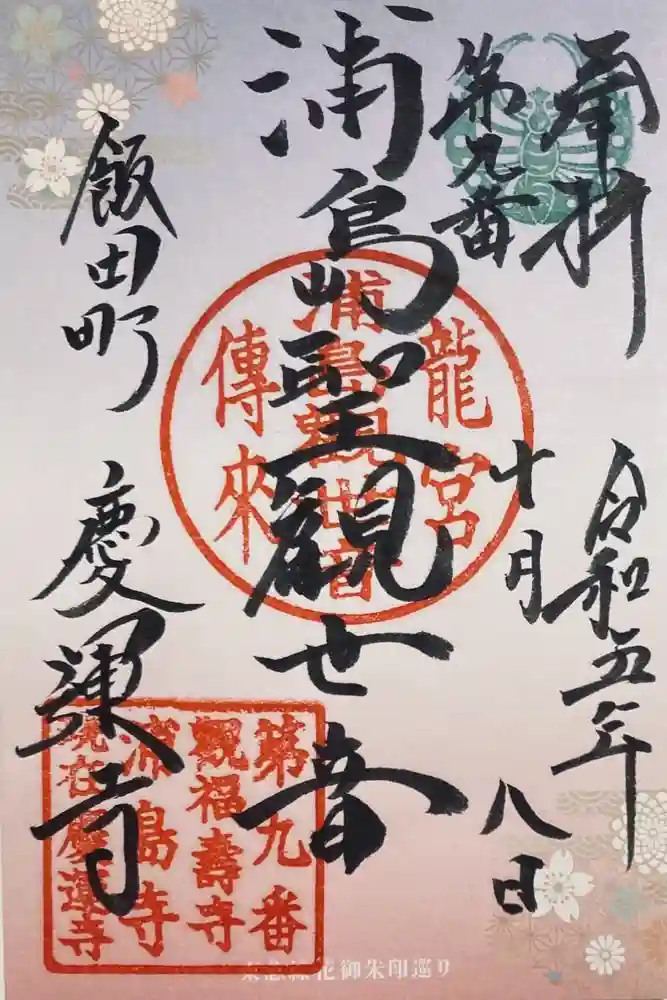 奉拝
令和五年
十月
八日
第九番
浦島聖観世音
飯田町 慶運寺
龍宮
浦島觀世音
傳來
第九番
觀福壽寺
浦島寺
現在慶運寺
東急線花御朱印巡り